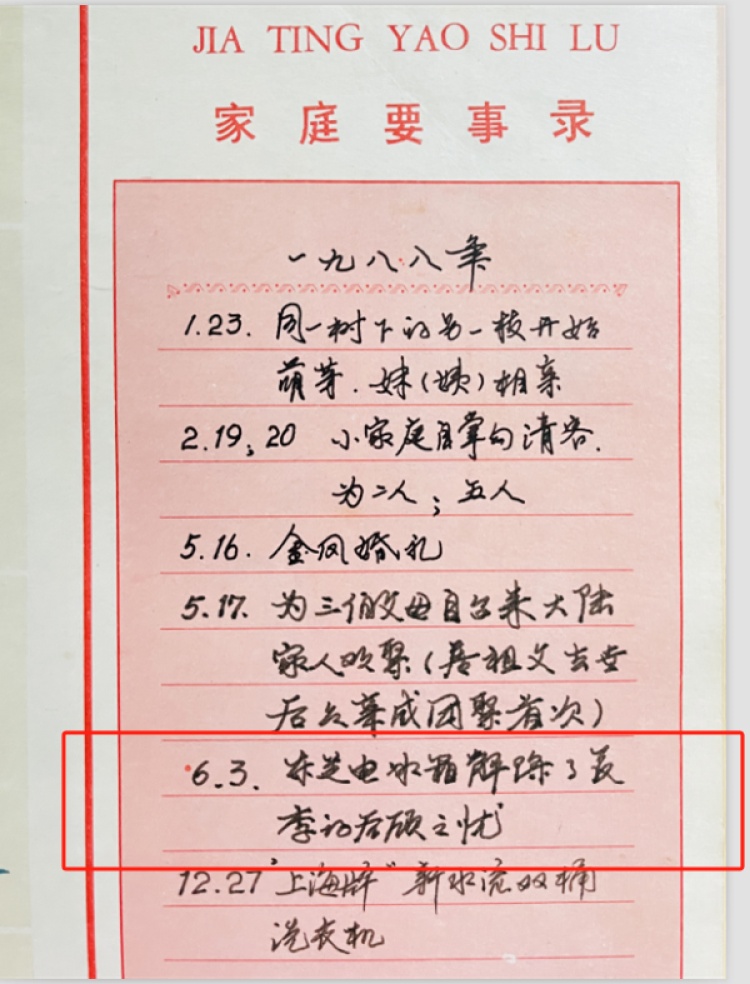 JIA TING YAO SHI LU
家庭要事录
一九八八年
1.23. 同一树下的另一枝开始
萌芽.妹(姨)相亲
2.19,20 小家庭自掌勺请客.
为二人;五人
5.16. 金凤婚礼
5.17. 为三伯父母自台来大陆
家人欢聚(居祖父去世
后众辈成团聚首次)
6.3. 东芝电冰箱解除了夏
季的后顾之忧
12.27 "上海牌"新水流双桶
洗衣机